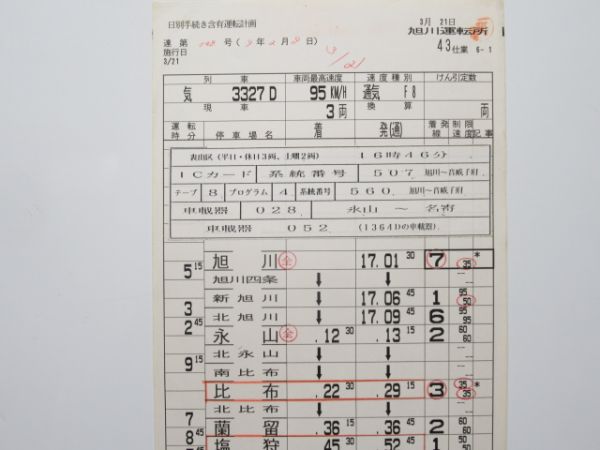 日別手続き含有運転計画
達第 号(9年2月8日)
施行日
3/21
3/21
3月 21日
旭川運転所
43仕業 6-1
列車 車両最高速度 速度種別 けん引定数
気 3327D 95KM/H 通気 F8
現車 3両 換算 両
運転時分 停車場名 着 発(通) 着発線 制限速度 記事
表出区(平日・休日3両、土曜2両) 16時46分
ICカード 系統番号 507 旭川〜音威子府
テープ 8 プログラム 4 系統番号 560 旭川〜音威子府
車載器 028 永山 〜 名寄
車載器 052 (1364Dの車載器)
旭川 金 17.01 30 7 35 *
5 15
旭川四条 ↓ ↓
新旭川 ↓ 17.06 45 1 95 50
3
北旭川 ↓ 17.09 45 6 95 95
2 45
永山 金 .12 30 .13 15 2 60 60
北永山 ↓ ↓
9 15
南比布 ↓ ↓
比布 .22 30 .29 15 3 35 35 *
北比布 ↓ ↓
7
蘭留 .36 15 .36 45 2 60 60
8 45
塩狩 .45 30 .52 45 1 50 50